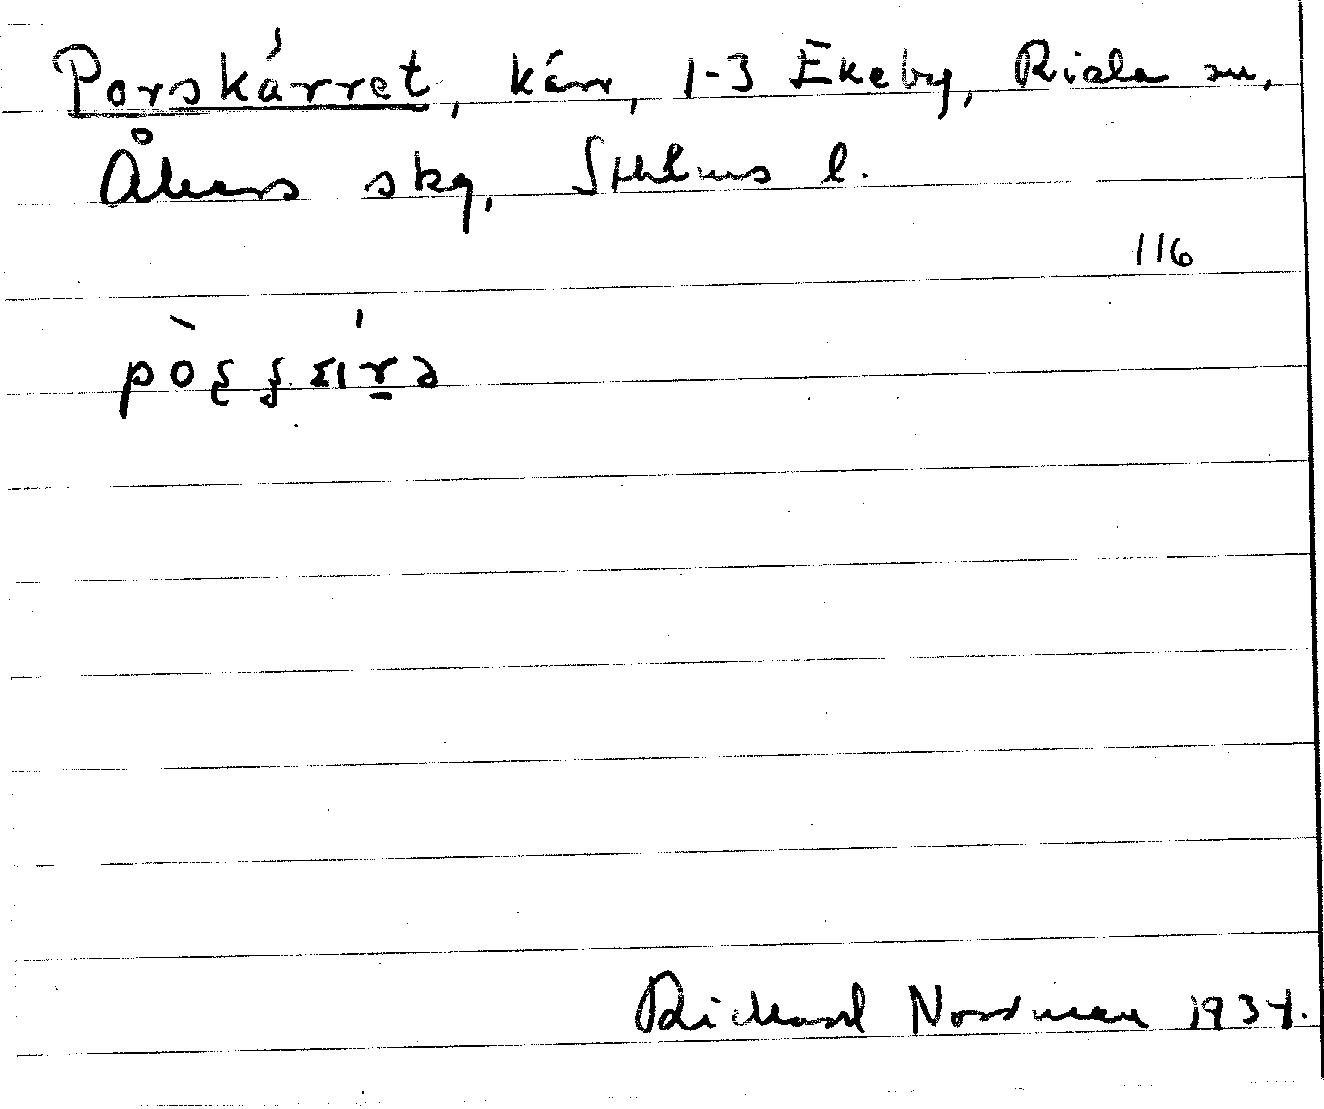 Porskärret, kärr, 1-3 Ekeby, Riala sn,
Åkers skg, Sthlms l.
116
Rickard Nordman 1934.